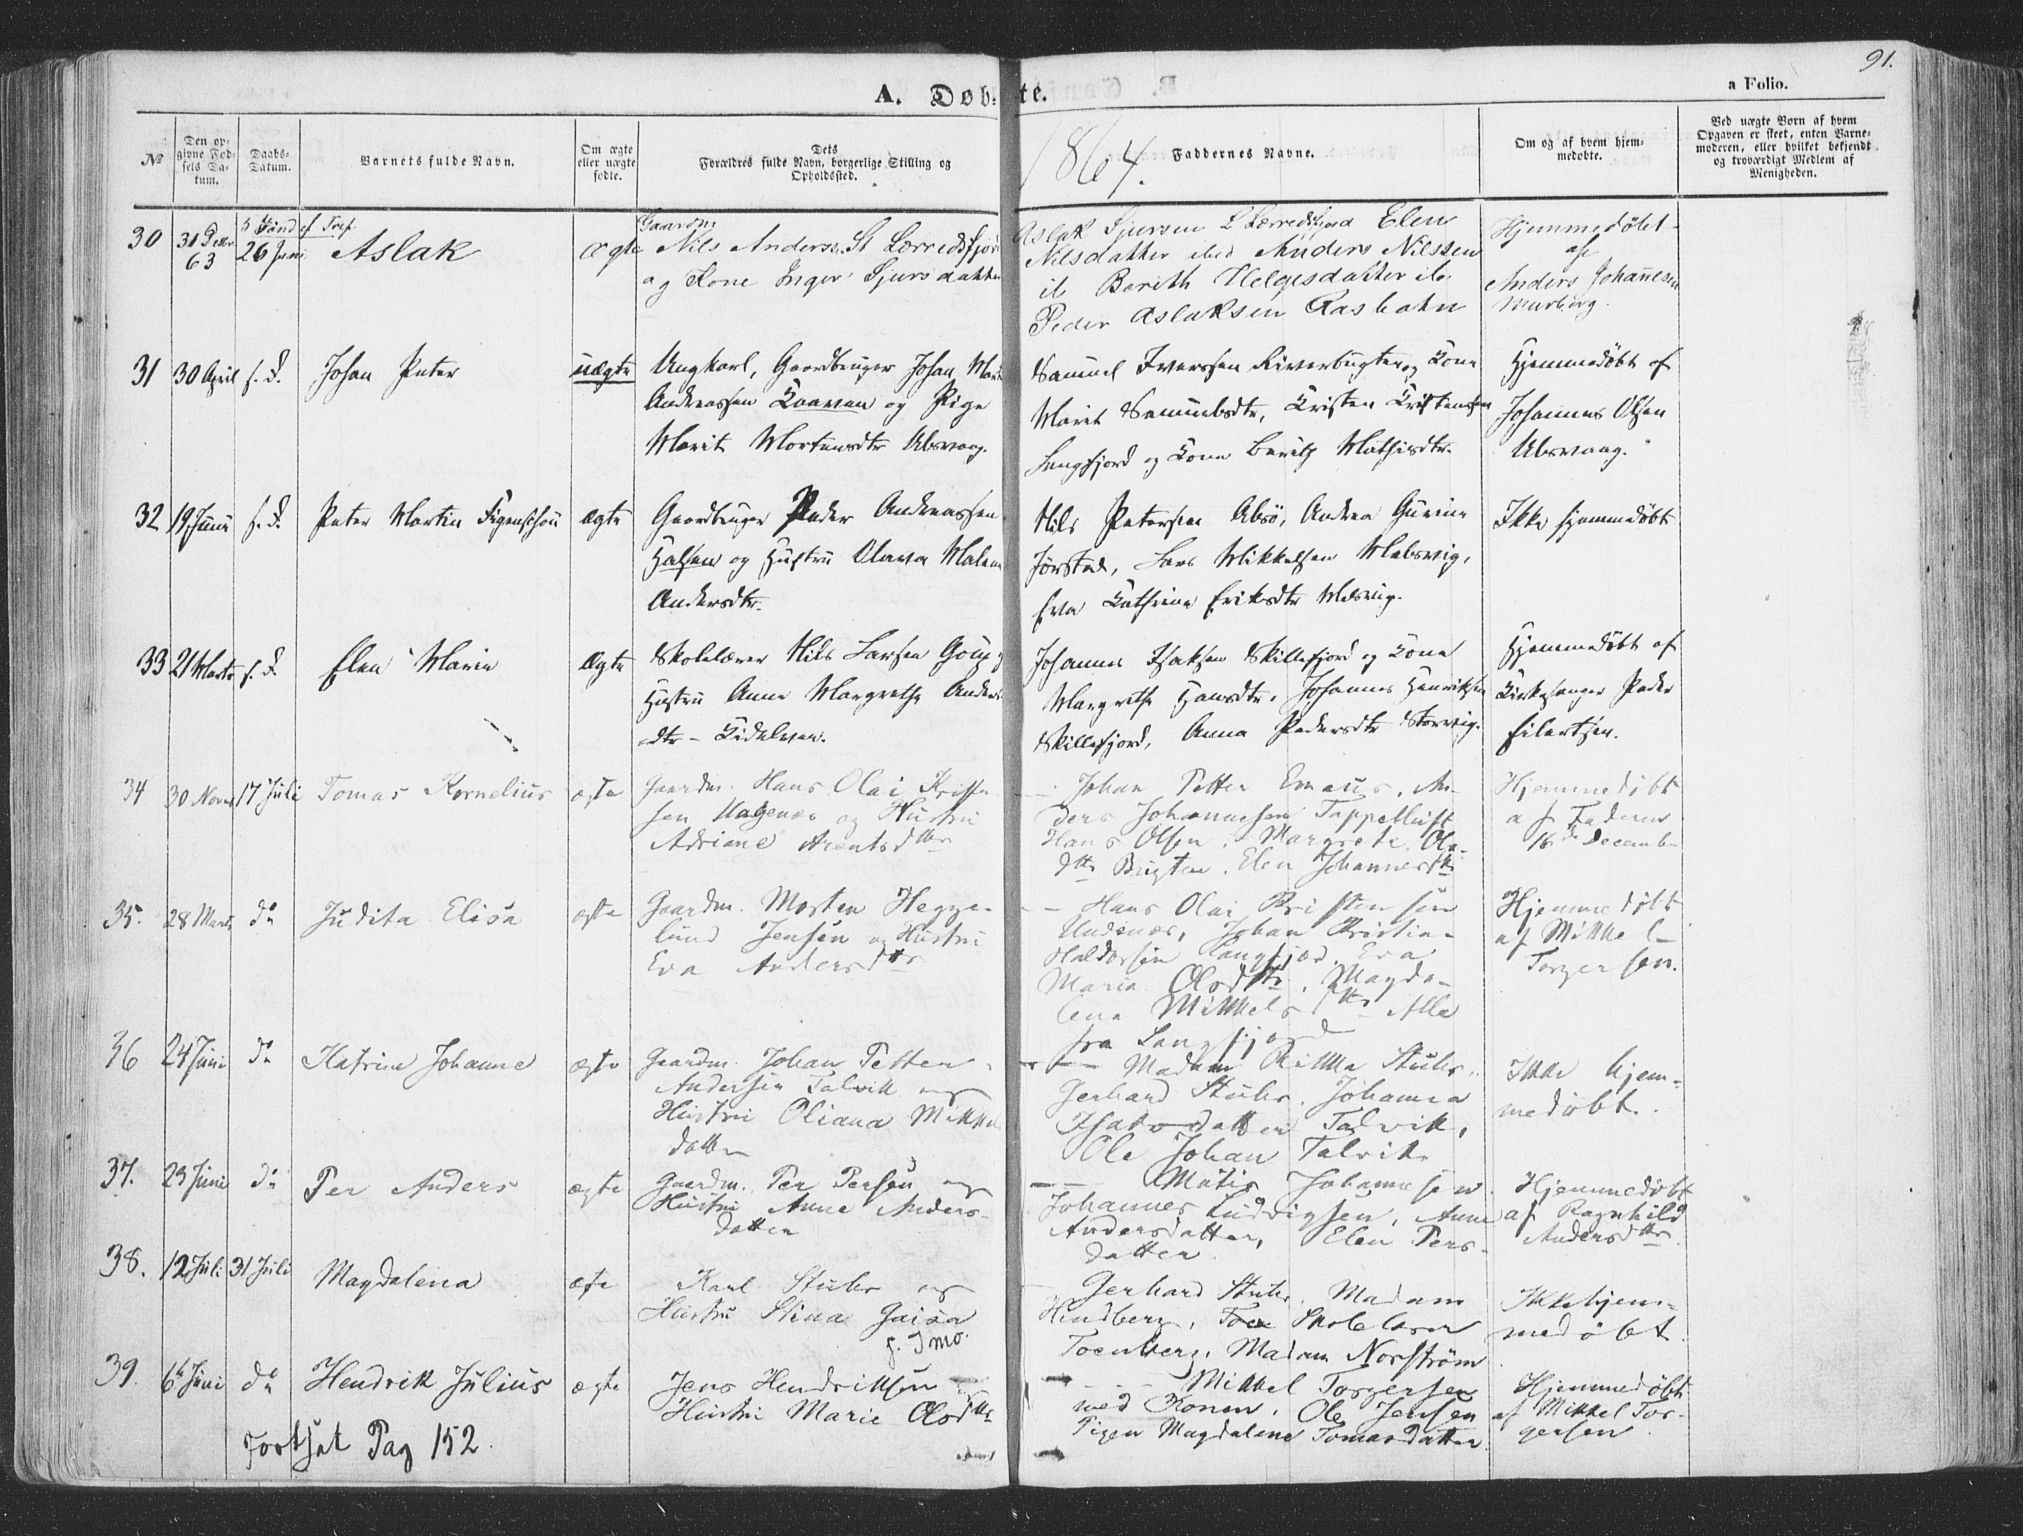 91.
A. Døbte.
a Folio.
1864.
No
Den opgivne Fødsels Datum.
Daabs-Datum.
Barnets fulde Navn.
Om ægte eller uægte fødte.
Dets Forældres fulde Navn, borgerlige Stilling og Opholdssted.
Faddernes Navne.
Om og af hvem hjemmedøbte.
Ved uægte Børn af hvem Opgaven er skeet, enten Barnemoderen, eller hvilket bekjendt og troværdigt Medlem af Menigheden.
30
31 Decbr 63
26 Juni
Aslak
ægte
Gaardm
Nils Anderss. St Lerredsfjord
og Kone Inger Sjursdatter
Aslak Sjursen L Lerredsfjord Elen
Nilsdatter ibid Anders Nilssen
ib Berith Helgesdatter ib.
Peder Aslaksen
Hjemmedøbt
af
Anders Johannesen
31
30 April
s. D.
Johan Peter
uægte
Ungkarl, Gaardbruger Johan
Andreassen og Pige
Marit Mortensdtr
Samuel Iverssen og Kone
Marit Samuelsdtr, Kristen Kristenssen
Langfjord og Kone Berith Mathisdtr.
Hjemmedøbt af
Johannes Olsen
32
19 Juni
s. D.
Peter Martin
ægte
Gaardbruger Peder Andreassen
Halsen og Hustru Olava
Andersdtr.
Nils Petersen Andrea Gurine
Jørstad, Lars Mikkelsen
Eva Cathrine Eriksdtr
Ikke hjemmedøbt
33
21 Marts
s. D.
Elen Marie
ægte
Skolelærer Nils Larsen
Hustru Anne Margrethe Anders
dtr
Johannes Isaksen Skillefjord og Kone
Margrethe Hansdtr, Johannes Henriksen
Skillefjord, Anna Pedersdtr Storvig.
Hjemmedøbt af
Kirkesanger Peder
Eilertsen.
34
30 Novbr
17 Juli
Tomas Kornelius
ægte
Gaardm. Hans Olai Kristen
sen og Hustru
Adriane Arentsdttr
Johan Petter Emaus, An-
ders Johannesen Tappelluft
Hans Olsen, Margrete Ols-
dttr Bugten, Elen Johannesdttr
Hjemmedøbt
af Faderen
16de Decemb
35.
28 Marts
do
Judita Elisa
ægte
Gaardm. Morten Hegge-
lund Jensen og Hustru
Eva Andersdttr
Hans Olai Kristensen
Johan Kristian
Haldorsen Langfjord, Eva
Maria Olsdttr, Magda-
lena Mikkelsdttr Alle
fra Langfjord
Hjemmedøbt
af Mikkel
Torgersen.
36
24 Juni
do
Katrine Johanne
ægte
Gaardm. Johan Petter
Andersen Talvik og
Hustru Oliana Mikkels
datter
Madam Rikka Stuhr,
Gerhard Stuhr, Johanna
Isaksdatter Talvik,
Ole Johan Talvik
Ikke hjem-
medøbt.
37.
23 Juni
do
Per Anders
ægte
Gaardm. Per Persen og
Hustru Anne Anders-
datter
Matis Johannesen
Johannes Ludvigsen, Anne
Andersdatter, Elen Pers-
datter
Hjemmedøbt
af Ragnhild
Andersdttr
38.
12 Juli
31 Juli
Magdalena
ægte
Karl Stuhr og
Hustru Stina Gaisa
f. Imo.
Gerhard Stuhr, Madam
Hindberg, Skolelærer
Toenberg, Madam Norström
Ikke hjem-
medøbt
39.
6te Juni
do
Hendrik Julius
ægte
Jens Hendriksen og
Hustru Marie Olsdttr
Mikkel Torgersen
med Konen, Ole Jensen
Pigen Magdalene Tomasdatter
Hjemmedøbt
af Mikkel Tor-
gersen
Fortsat Pag 152.